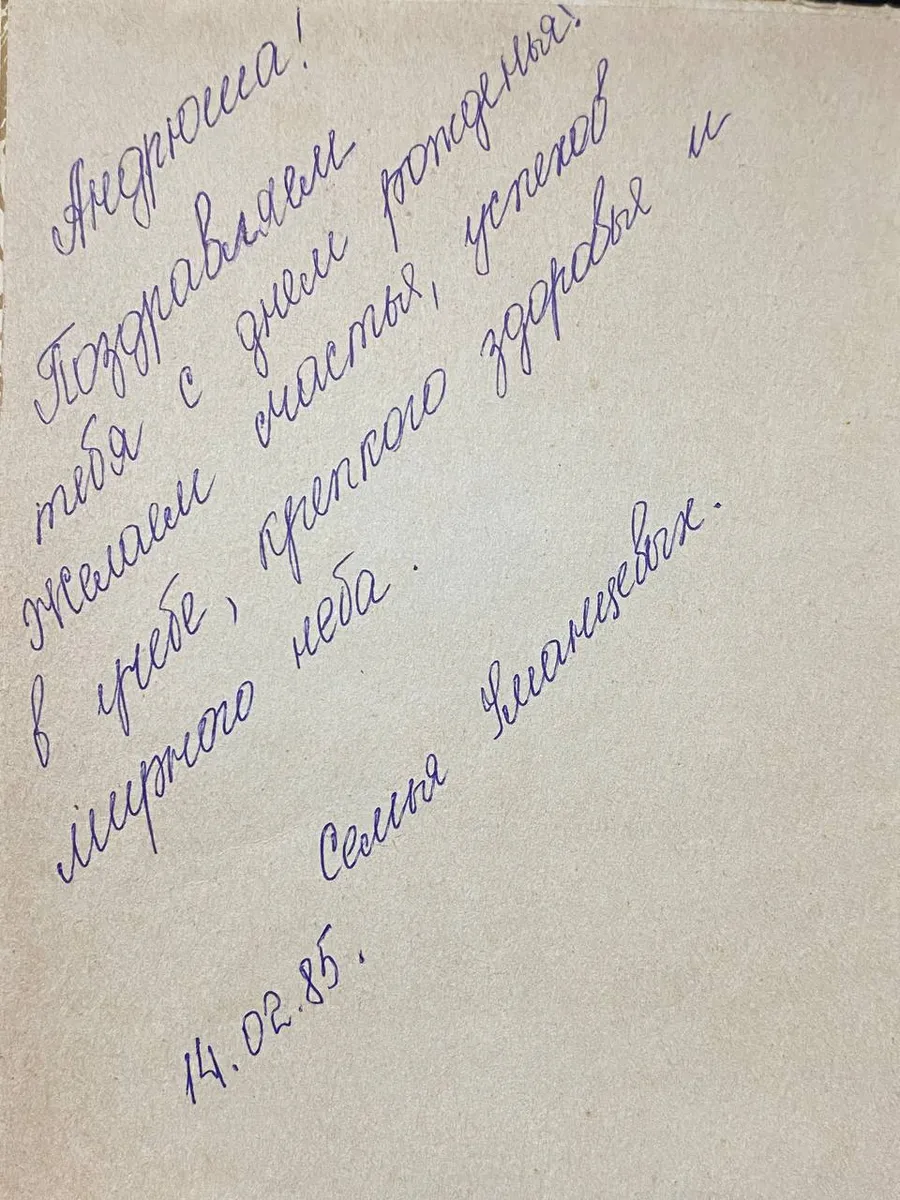 Андрюша!
Поздравляем
тебя с днем рожденья!
Желаем счастья, успехов
в учебе, крепкого здоровья и
мирного неба.
Семья Уманцевых.
14.02.85.